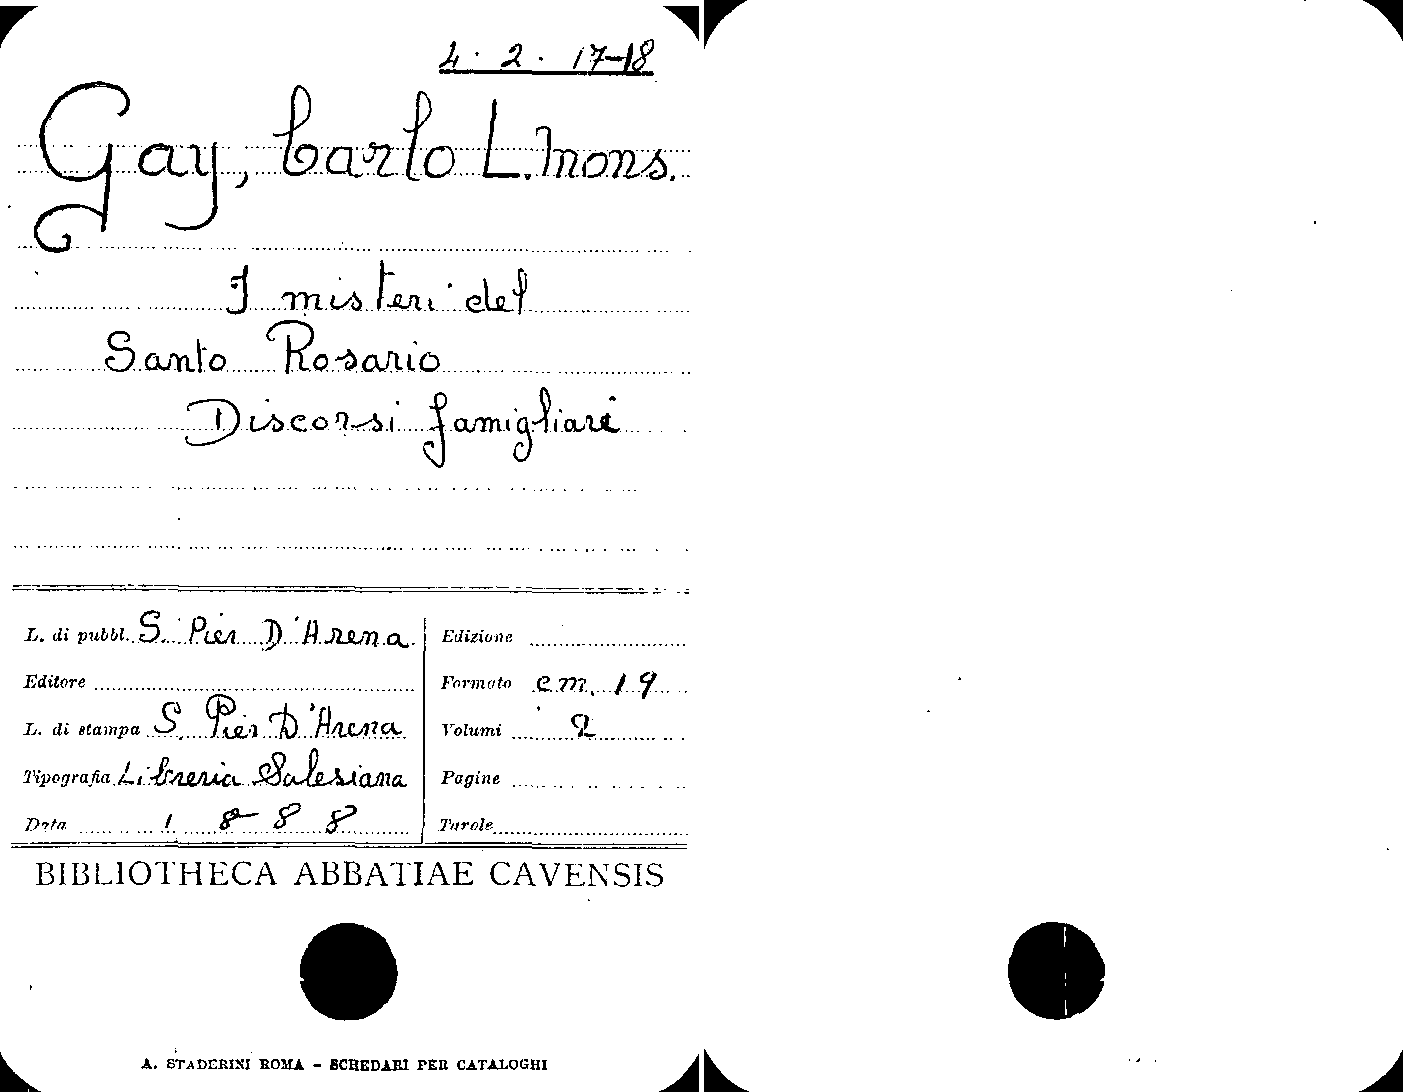 4. 2. 17-18
Gay, Carlo L. Mons.
I misteri del
Santo Rosario
Discorsi famigliari
L. di pubbl. S. Pier D'Arena
Editore
L. di stampa S. Pier D'Arena
Tipografia Libreria Salesiana
Data 1888
Edizione
Formato cm. 19
Volumi 2
Pagine
Tavole
BIBLIOTHECA ABBATIAE CAVENSIS
A. STADERINI ROMA - SCHEDARI PER CATALOGHI